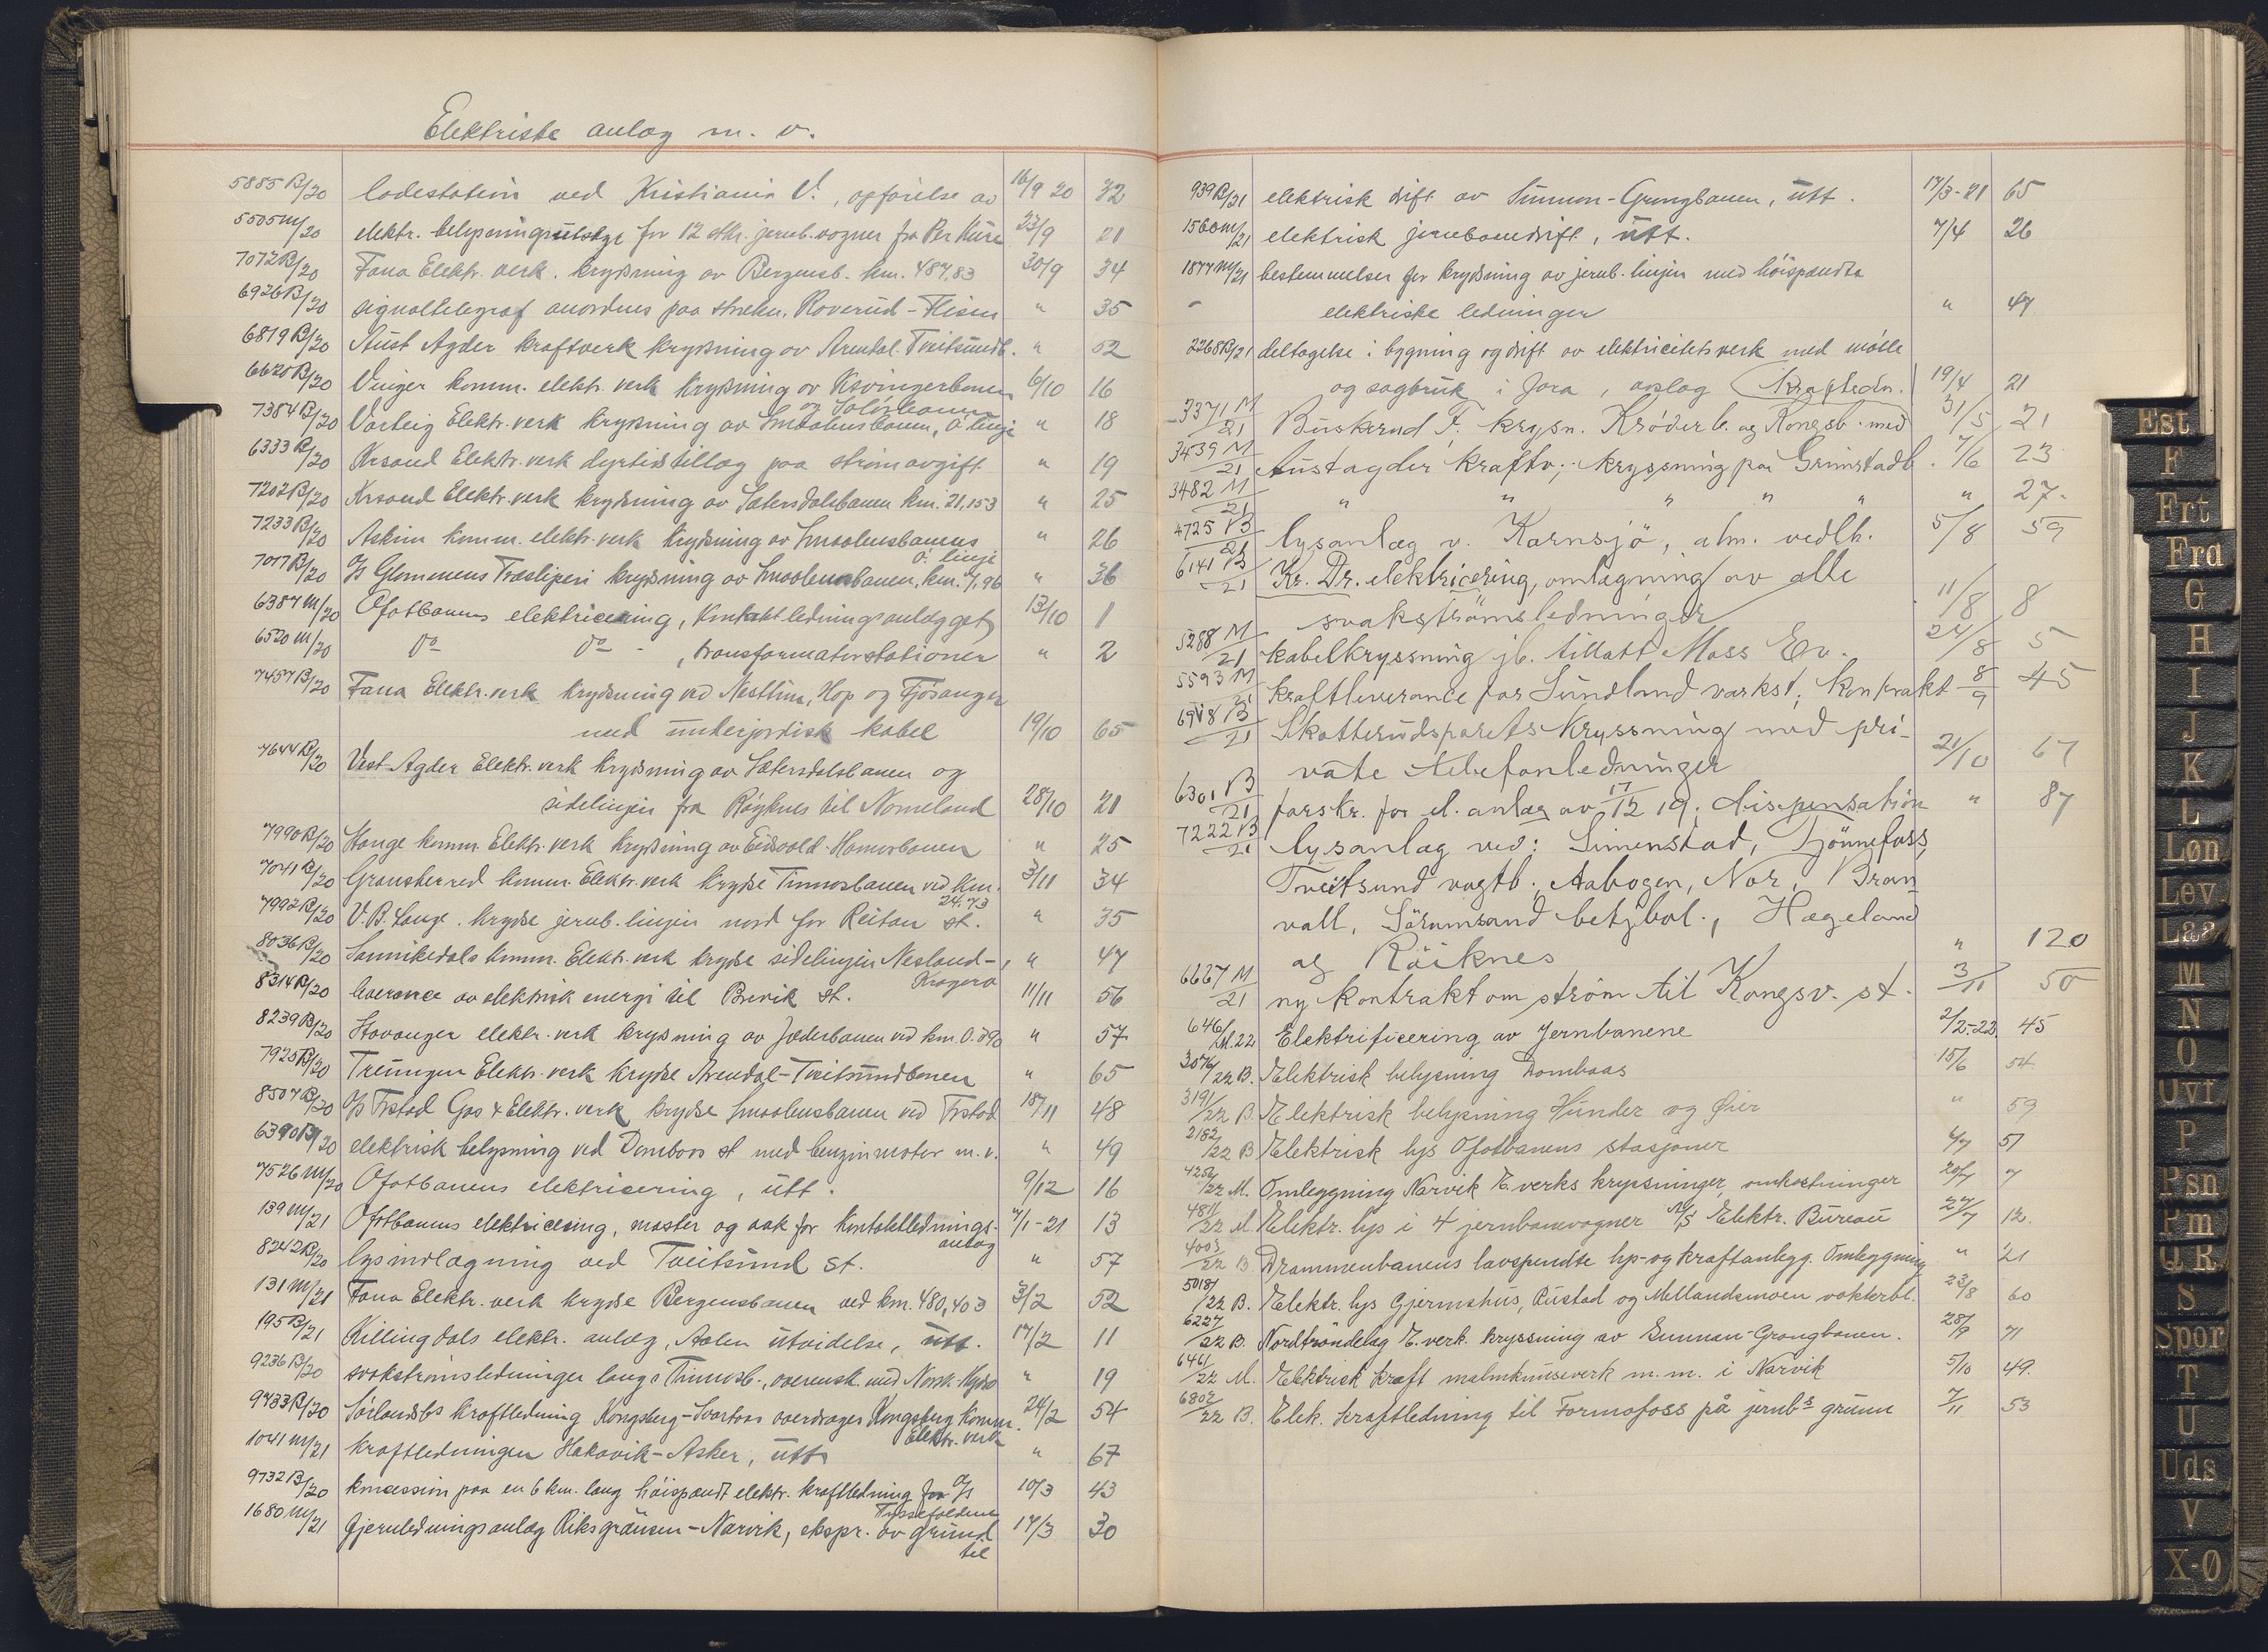 Elektriske anlæg m. v.
5885 B/20 ladestation ved Kristiania V., opførelse av 16/9 20 32
5505 M/20 elektr. belysningsutstyr for 12 stkr. jernb.vogner fra Per Kure 23/9 21
7072 B/20 Fana Elektr. verk. krydsning av Bergensb. km. 487,83 30/9 34
6926 B/20 signaltelegraf anordnes paa strekn. Roverud-Flisen " 35
6819 B/20 Aust Agder kraftverk krydsning av Arendal-Treitsundb. " 52
6620 B/20 Vinger komm. elektr. verk krydsning av Kongsvingerbanen 6/10 16
og Solørbanen
7384 B/20 Varteig Elektr. verk krydsning av Smaalensbanen, Ø. linje " 18
6333 B/20 Krsand Elektr. verk dyrtidstillæg paa strømavgift " 19
7202 B/20 Krsand Elektr. verk krydsning av Sætersdalsbanen km. 21,153 " 25
7233 B/20 Askim komm. elektr. verk krydsning av Smaalensbanens " 26
Ø. linje
7077 B/20 A/S Glommens Træsliperi krydsning av Smaalensbanen, km. 71,96 " 36
6387 M/20 Ofotbanens elektricering, Kontaktledningsanlægget 13/10 1
6520 M/20 Do Do - , transformatorstationer " 2
7457 B/20 Fana Elektr. verk krydsning ved Nesttun, Hop og Fjøsanger
med underjordisk kabel 19/10 65
7644 B/20 Vest Agder Elektr. verk krydsning av Sætersdalsbanen og
sidelinjen fra Røyknes til Nomeland 28/10 21
7990 B/20 Stange komm. Elektr. verk krydsning av Eidsvold-Hamarbanen " 25
7041 B/20 Gransherred komm. Elektr. verk krydse Tinnosbanen ved km. 3/11 34
24,73
7992 B/20 V.B. Lange. krydse jernb. linjen nord for Reitan st. " 35
8036 B/20 Sannikedals komm. Elektr. verk krydse sidelinjen Nesland- " 47
Kragerø
8314 B/20 leverance av elektrisk energi til Brevik st. 11/11 56
8239 B/20 Stavanger elektr. verk krydsning av Jæderbanen ved km. 0.890 " 57
7925 B/20 Treungen Elektr. verk krydse Arendal-Treitsundbanen " 65
8507 B/20 A/S Frstad Gas & Elektr. verk krydse Smaalensbanen ved Frstad 18/11 48
6390 B/20 elektrisk belysning ved Dombaas st med benzinmotor m.v. " 49
7526 M/20 Ofotbanens elektricering, utt. 9/12 16
139 M/21 Ofotbanens elektricering, master og aak for Kontaktlednings- 7/1-21 13
anlæg
8242 B/20 lysindlægning ved Treitsund st. " 57
131 M/21 Fana Elektr. verk krydse Bergensbanen ved km. 480,403 3/2 52
195 B/21 Killingdals elektr. anlæg, Aalen utvidelse, utt. 17/2 11
9236 B/20 svakstrømsledninger langs Tinnosb., overensk. med Norsk Hydro " 19
9433 B/20 Sørlandsbs kraftledning Kongsberg-Svartaas overdrages Kongsberg komm. 24/2 54
Elektr. verk
1041 M/21 Kraftledningen Hakavik-Asker, utt " 67
9732 B/20 koncession paa en 6 km. lang høispændt elektr. kraftledning for A/S 10/3 43
Tyssefaldene
1680 M/21 fjernledningsanlæg Riksgränsen-Narvik, ekspr. av grund 17/3 30
til
939 B/21 elektrisk drift av Sunnan-Grongbanen, utt. 17/3-21 65
1560 M/21 elektrisk jernbanedrift, utt. 7/4 26
1877 M/21 bestemmelser for krydsning av jernb. linjen med høispændte
- elektriske ledninger " 47
2268 B/21 deltagelse i bygning og drift av elektricitetsverk med mølle
og sagbruk i Jora, avslag (Kraftledn. 19/4 21
3371 M/21 Buskerud F. krysn. Krøderb. og Kongsb. med 31/5 21
3439 M/21 Austagder Kraftv; kryssning på Grimstadb. 7/6 23
3482 M/21 " " " " " " 27.
4725 B/21 lysanlæg v. Kornsjö, alm. vedlh. 5/8 59
6141 B/21 Kr. Dr. elektricering, omlægning av alle
svakströmsledninger 11/8 8
5288 M/21 kabelkryssning jb. tillatt Moss Ev. 24/8 5
5593 M/21 kraftleverance for Sundland verkst; Kontrakt 8/9 45
6978 B/21 Skotterudsporets Kryssning med pri-
vate telefonledninger 21/10 67
6301 B/21 forskr. for el. anlæg av 17/12 19; dispensation " 87
7222 B/21 lysanlæg ved: Simenstad, Tjönnefoss,
Treitsund vogtb., Aabogen, Nor, Bran-
vall, Sörumsand betjbol., Hægeland
og Röiknes " 120
6667 M/21 ny kontrakt om ström til Kongsv. st. 3/11 50
646/M.22 Elektrificering av Jernbanene 2/2-22 45
3076/22 B. Elektrisk belysning Dombaas 15/6 54
3191/22 B. Elektrisk belysning Hunder og Øier " 59
2182/22 B Elektrisk lys Ofotbanens stasjoner 6/7 51
4252/22 M. Omleggning Narvik E. verks kryssninger, omkostninger 20/7 7
4811/22 M. Elektr. lys i 4 jernbanevogner A/S Elektr. Bureau 27/7 12.
4003/22 B Drammenbanens lavspendte lys- og kraftanlegg. Omleggning " 21
5018/22 B. Elektr. lys Gjermshus, Rustad og Mellandsmoen vokterbl. 23/8 60
6227/22 B. Nordtröndelag E. verk. kryssning av Sunnan-Grongbanen. 28/9 71
6461/22 M. Elektrisk kraft malmknuseverk m.m. i Narvik 5/10 49.
6802/22 B. Elek. kraftledning til Formofoss på jernbs grunn 7/11 53
Est
F
Frt
Frd
G
H
I
J
K
L
Løn
Lev
Laa
M
N
O
Ovf
P
Psn
Pm
Q R
S
Spor
T
U
Uds
V
X-Ø